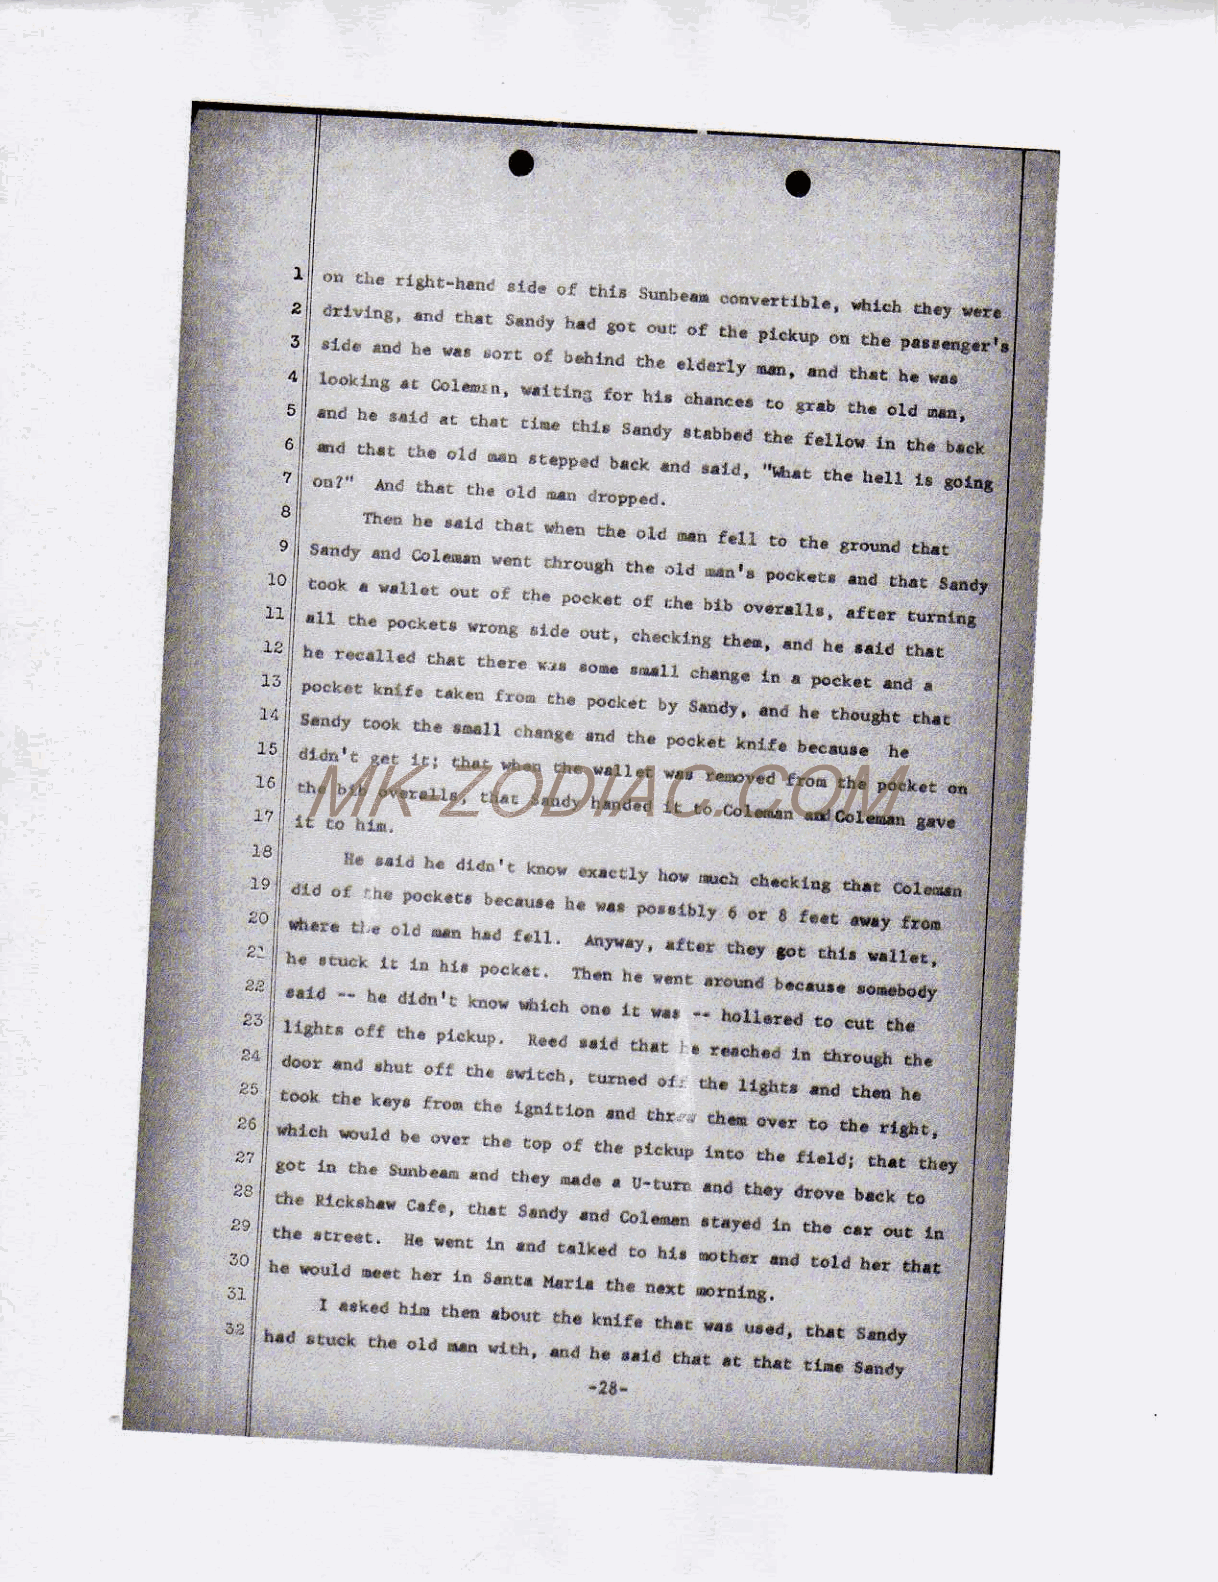 1 on the right-hand side of this Sunbeam convertible, which they were
2 driving, and that Sandy had got out of the pickup on the passenger's
3 side and he was sort of behind the elderly man, and that he was
4 looking at Coleman, waiting for his chances to grab the old man,
5 and he said at that time this Sandy stabbed the fellow in the back
6 and that the old man stepped back and said, "What the hell is going
7 on?" And that the old man dropped.
8 Then he said that when the old man fell to the ground that
9 Sandy and Coleman went through the old man's pockets and that Sandy
10 took a wallet out of the pocket of the bib overalls, after turning
11 all the pockets wrong side out, checking them, and he said that
12 he recalled that there was some small change in a pocket and a
13 pocket knife taken from the pocket by Sandy, and he thought that
14 Sandy took the small change and the pocket knife because he
15 didn't get it; that when the wallet was removed from the pocket on
16 the bib overalls, that Sandy handed it to Coleman and Coleman gave
17 it to him.
MK-ZODIAC.COM
18 He said he didn't know exactly how much checking that Coleman
19 did of the pockets because he was possibly 6 or 8 feet away from
20 where the old man had fell. Anyway, after they got this wallet,
21 he stuck it in his pocket. Then he went around because somebody
22 said -- he didn't know which one it was -- hollered to cut the
23 lights off the pickup. Reed said that he reached in through the
24 door and shut off the switch, turned off the lights and then he
25 took the keys from the ignition and threw them over to the right,
26 which would be over the top of the pickup into the field; that they
27 got in the Sunbeam and they made a U-turn and they drove back to
28 the Rickshaw Cafe, that Sandy and Coleman stayed in the car out in
29 the street. He went in and talked to his mother and told her that
30 he would meet her in Santa Maria the next morning.
31 I asked him then about the knife that was used, that Sandy
32 had stuck the old man with, and he said that at that time Sandy
-28-